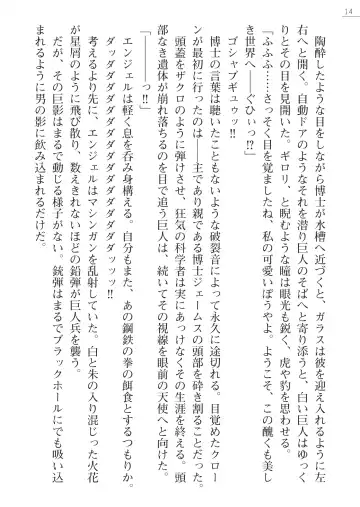 14
陶酔したような目をしながら博士が水槽へ近づくと、ガラスは彼を迎え入れるように左
右へと開く。自動ドアのようなそれを潜り巨人のそばへと寄り添うと、白い巨人はゆっく
りとその目を見開いた。ギロリ、と睨むような瞳は眼光も鋭く、虎や豹を思わせる。
「ふふふ……さっそく目を覚ましたね、私の可愛いぼうやよ。ようこそ、この醜くも美し
き世界へ――ぐひぃっ!?」
ゴシャブギュウッ!!
博士の言葉は聴いたこともないような破裂音によって永久に途切れる。目覚めたクロー
ンが最初に行ったのは――主であり親である博士ジェームスの頭部を砕き割ることだった。
頭蓋をザクロのように弾けさせ、狂気の科学者は実にあっけなくその生涯を終える。頭
部なき遺体が崩れ落ちるのを目で追う巨人は、続いてその視線を眼前の天使へと向けた。
「――――っ!!」
エンジェルは軽く息を呑み身構える。自分もまた、あの鋼鉄の拳の餌食とするつもりか。
ダッダダダダダダダダダダダダッッッ!!
考えるより先に、エンジェルはマシンガンを乱射していた。白と朱の入り混じった火花
が星屑のように散り、数えきれないほどの鉛弾が巨人兵を襲う。
だが、その巨影はまるで動じる様子がない。銃弾はまるでブラックホールにでも吸い込
まれるように男の影に飲み込まれるだけだ。